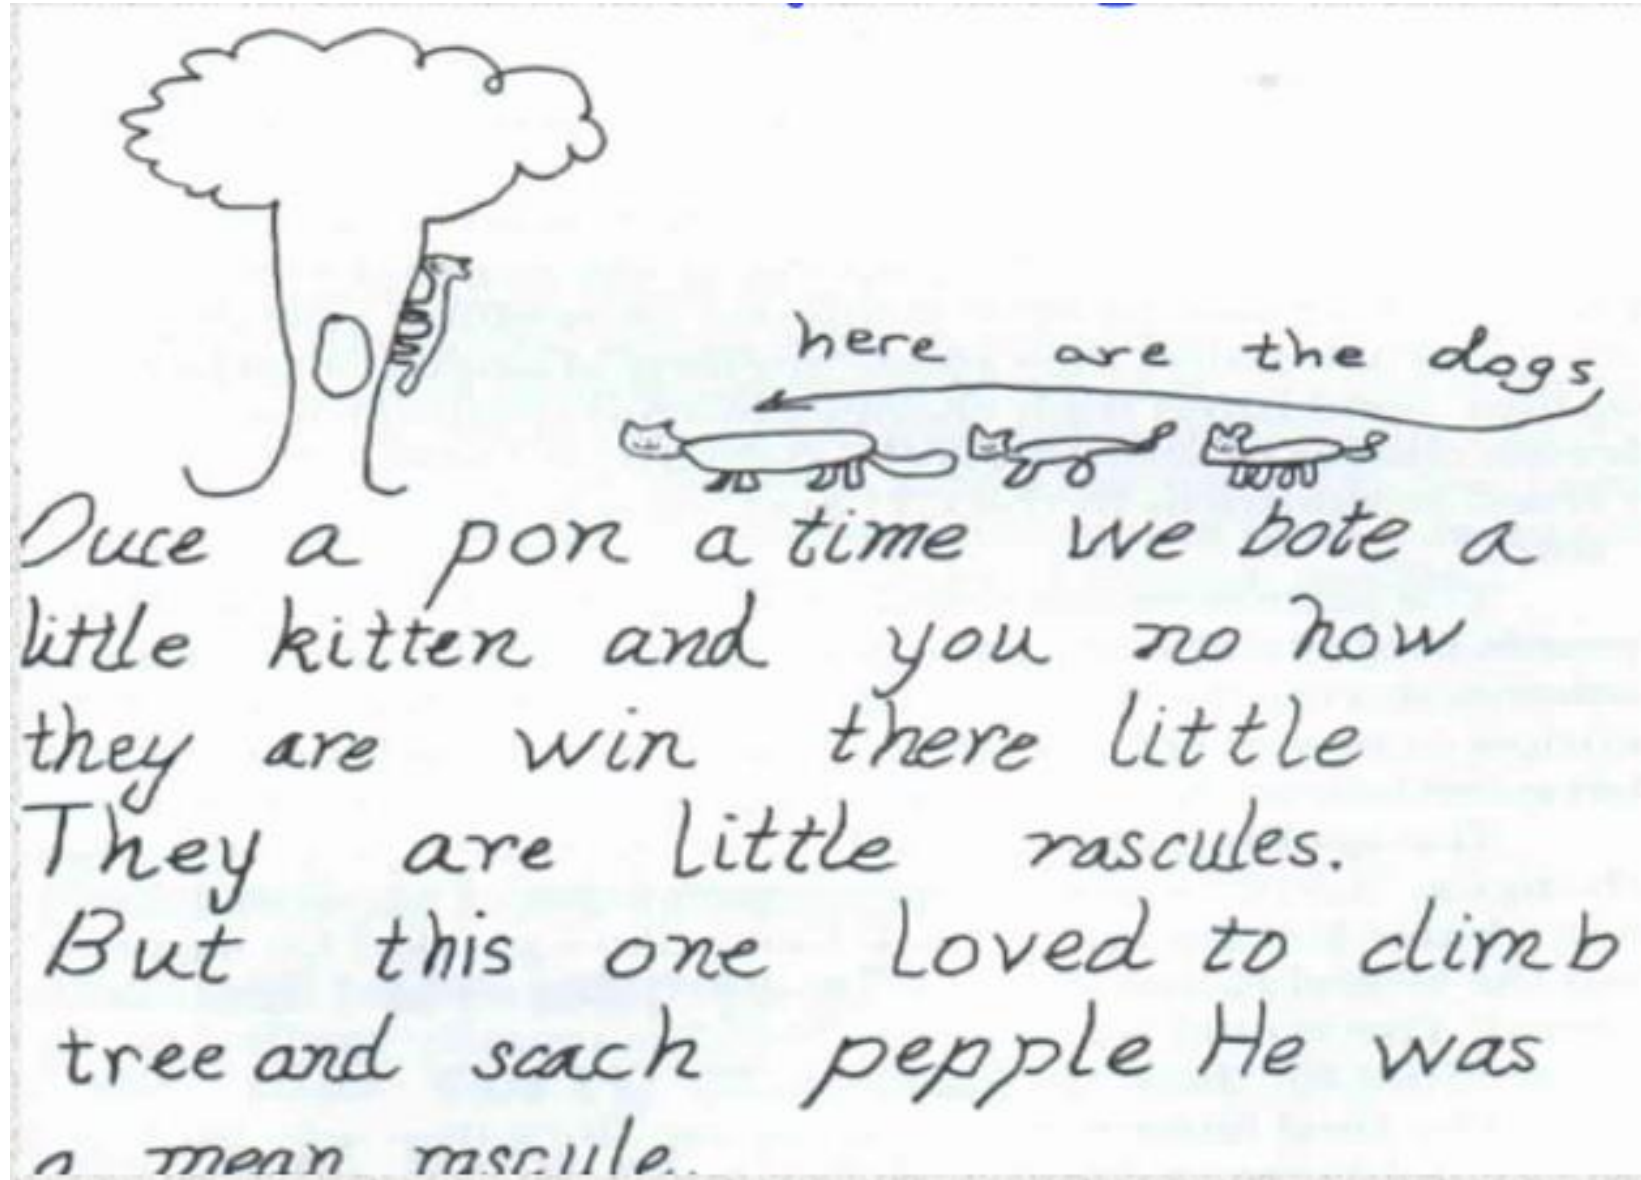 here are the dogs
Ouce a pon a time we bote a
little kitten and you no how
they are win there little
They are little rascules.
But this one Loved to climb
tree and scach pepple He was
a mean rascule.